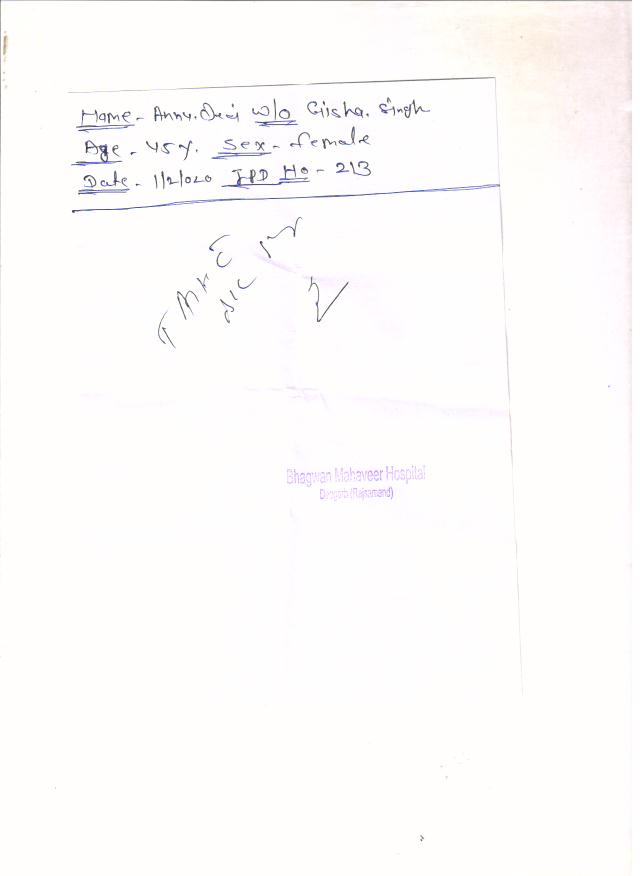 Name - Annu. Devi w/o Girsha. Singh
Age - 45 y. Sex - female
Date - 1/2/020 IPD No - 213
TAKE
Bhagwan Mahaveer Hospital
(Rajsamand)